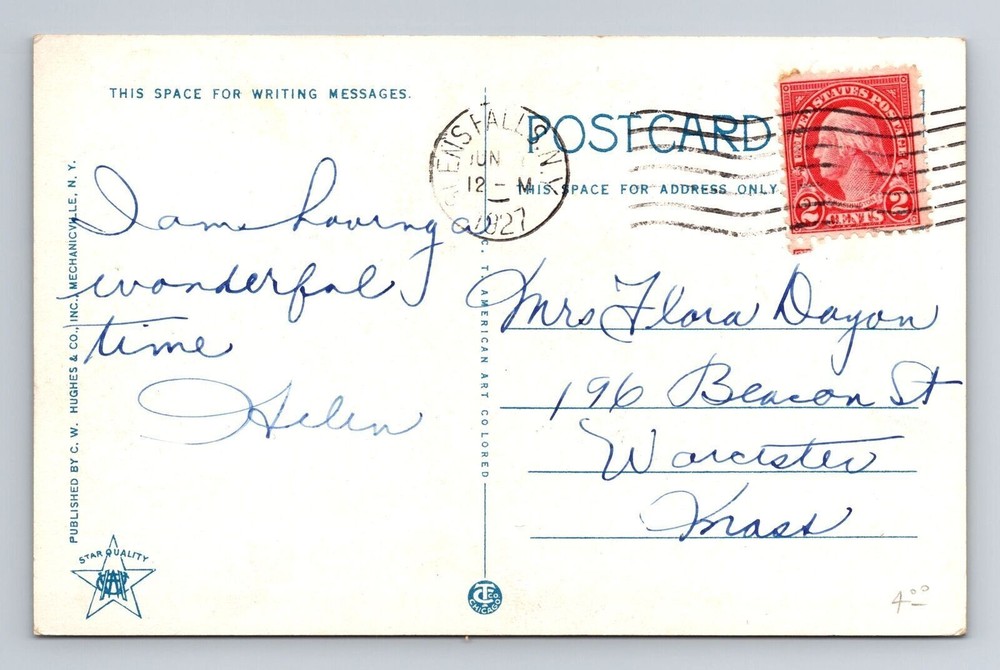 THIS SPACE FOR WRITING MESSAGES.
POSTCARD
THIS SPACE FOR ADDRESS ONLY
GLENS FALLS, N.Y.
JUN
12 - M
1927
UNITED STATES POSTAGE
2 CENTS 2
I am having a
wonderful
time
Helen
Mrs Flora Dayon
196 Beacon St
Worcester
Mass
PUBLISHED BY C. W. HUGHES & CO., INC., MECHANICVILLE, N. Y.
C. T. AMERICAN ART COLORED
STAR QUALITY
CHICAGO
4.00